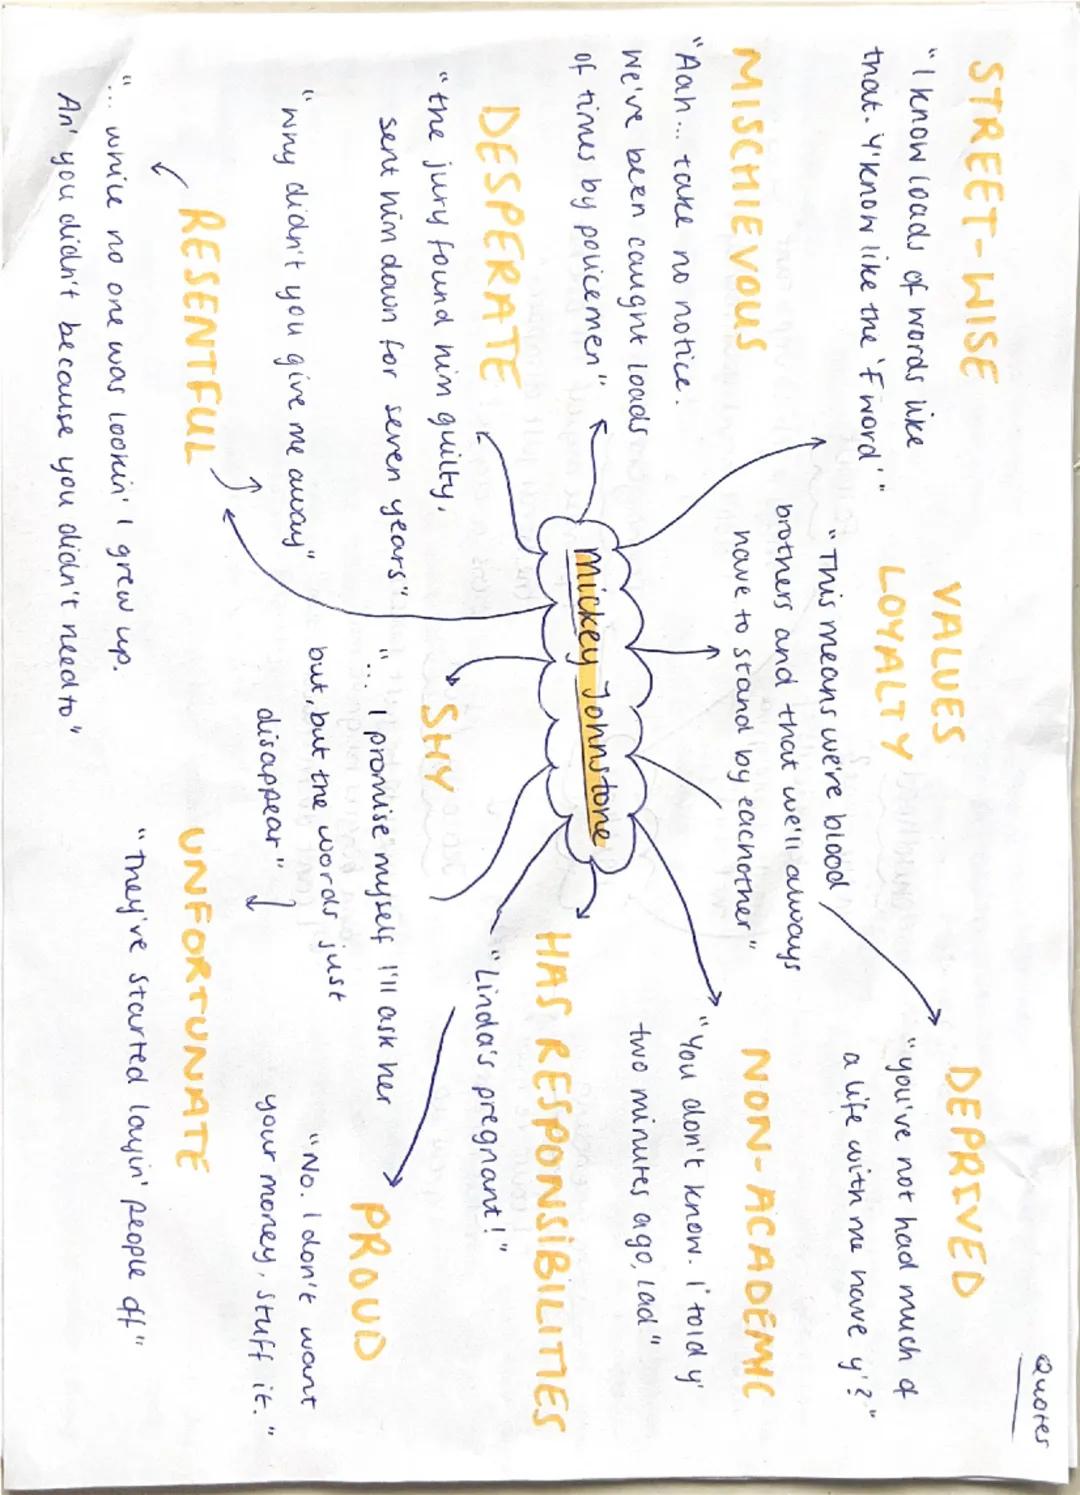 Quotes
STREET-WISE
"I know loads of words like
that. Y'know like the 'F word'"
VALUES
LOYALTY
"This means we're blood
brothers and that we'll always
have to stand by eachother"
DEPRIVED
"you've not had much of
a life with me have y'?"
MISCHIEVOUS
"Aah... take no notice.
We've been caught loads
of times by policemen"
NON-ACADEMIC
"You don't know. I' told y'
two minutes ago, lad"
Mickey Johnstone
DESPERATE
"the jury found him guilty,
sent him down for seven years"
HAS RESPONSIBILITIES
"Linda's pregnant!"
SHY
"... I promise myself I'll ask her
but, but the words just
disappear"
PROUD
"No. I don't want
your money, stuff it."
"why didn't you give me away"
RESENTFUL
"... while no one was lookin' I grew up.
An' you didn't because you didn't need to"
UNFORTUNATE
"They've started layin' people off"